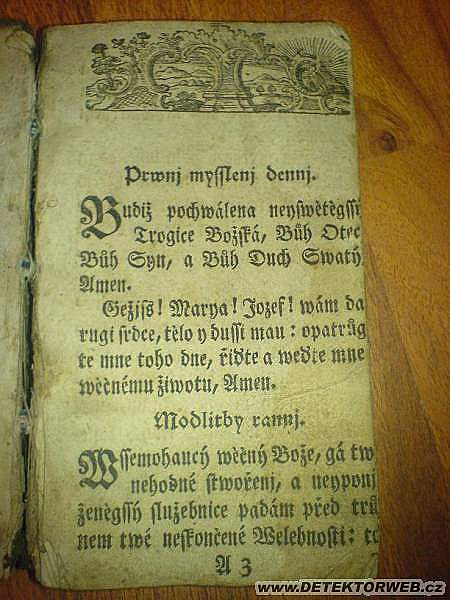 Prwnj mysslenj dennj.
Budiž pochwálena neyswětěgssý
Trogice Božská, Bůh Otec
Bůh Syn, a Bůh Duch Swatý,
Amen.
Gežjss! Marya! Jozef! wám da
rugi srdce, tělo y dussi mau: opatrůg
te mne toho dne, řiďte a weďte mne
wěčnému žiwotu, Amen.
Modlitby rannj.
Wssemohaucý wěčný Bože, gá tw
nehodné stwořeni, a neyponj
ženěgssý služebnice padám před trů
nem twé neskončené Welebnosti: to
A 3
www.DETEKTORWEB.cz